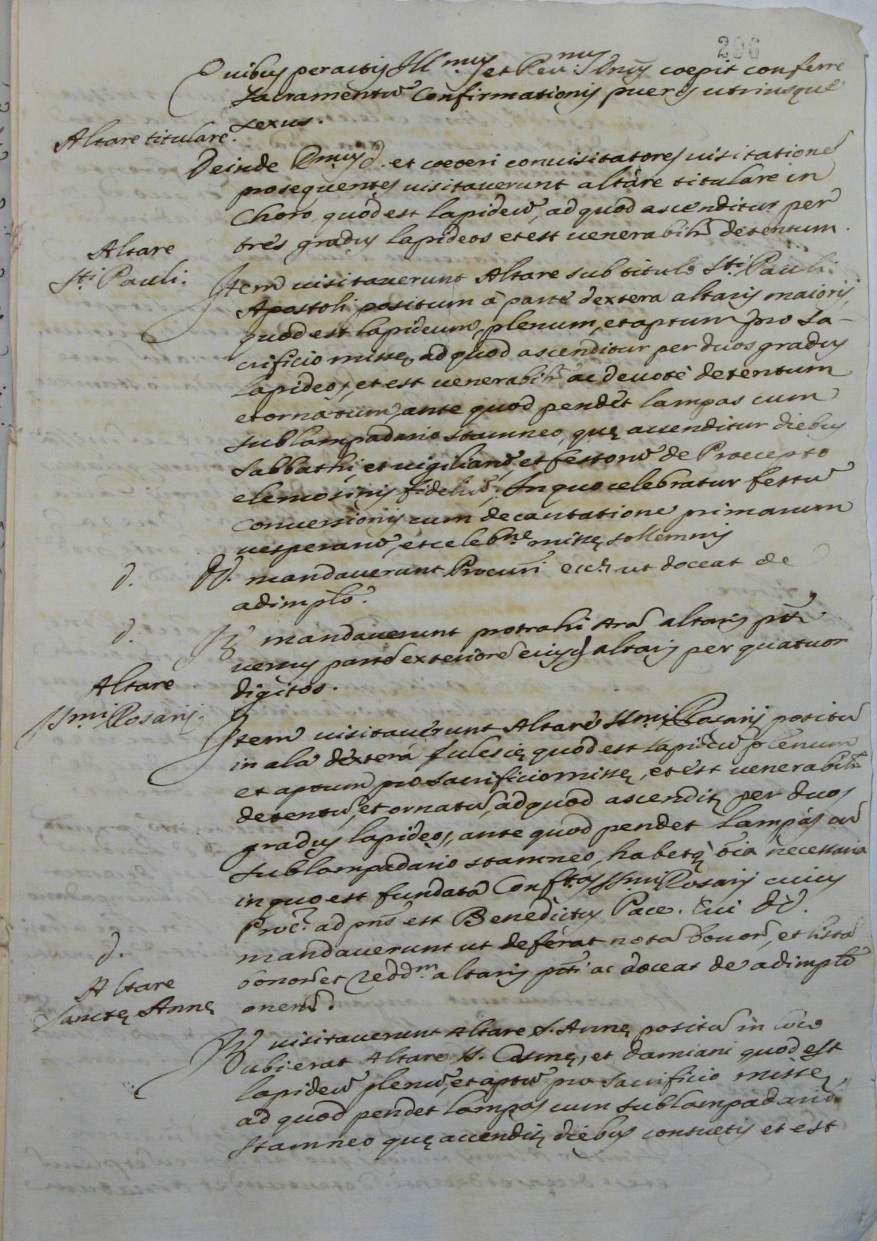 296
Quibus peractis Ill.mus et Rev.mus D.nus coepit conferre
Sacramentũ Confirmationis pueris utriusque
sexus.
Altare titulare.
Deinde D. et coeteri convisitatores visitationẽ
prosequentes visitaverunt altare titulare in
Choro, quod est lapideũ, ad quod ascenditur per
tres gradus lapideos et est venerabilr detentum.
Altare
S.ti Pauli.
Item visitaverunt Altare sub titulo S.ti Pauli
Apostoli positum à parte dextera altaris maioris,
quod est lapideum, plenum, et aptum pro Sa-
crificio missę, ad quod ascenditur per duos gradus
lapideos, et est venerabilr ac devotè detentum
et ornatum, ante quod pendet lampas cum
sublampadario stamneo, quę accenditur diebus
Sabbathi, et vigiliarũ, et festorũ de Praecepto
elemosinis fidelium; In quo celebratur festũ
Conversionis cum decantatione primarum
vesperarũ, et celeb.ne missę sollemnis
d. DD. mandaverunt Procuri eius ut doceat de
adimplto.
d. It. mandaverunt protrahi Arã altaris pti
versus partẽ exteriorẽ eiusd altaris per quatuor
digitos.
Altare
SS.mi Rosarij.
Item visitaverunt Altare SS.mi Rosarij positũ
in ala dextera Eclesię quod est lapideũ plenum
et aptum pro sacrificio missę, et est venerabilr
detentũ, et ornatũ, ad quod ascendit per duos
gradus lapideos, ante quod pendet lampas cũ
sublampadario stamneo, habetq oĩa necessaria
in quo est fundata Conf.tas SS.mi Rosarij cuius
Proc.r ad pñs est Benedictus Pace. Cui DD.
d. mandaverunt ut deferat notã bonorũ, et listã
onorũ et redd.m altaris pti ac doceat de adimplto
onerũ.
Altare
Sanctę Annę
It. visitaverunt Altare S. Annę positũ in loco
ubi erat Altare SS. Cosmę, et Damiani quod est
lapideũ plenũ, et aptũ pro sacrificio missę,
ad quod pendet lampas cum sublampadario
stamneo quę accendit diebus consuetis et est